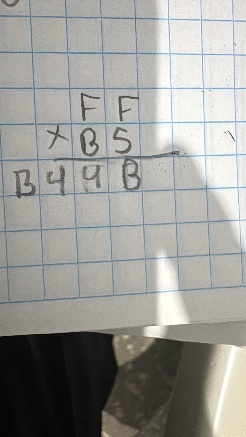 F F
× B 5
B 4 4 B